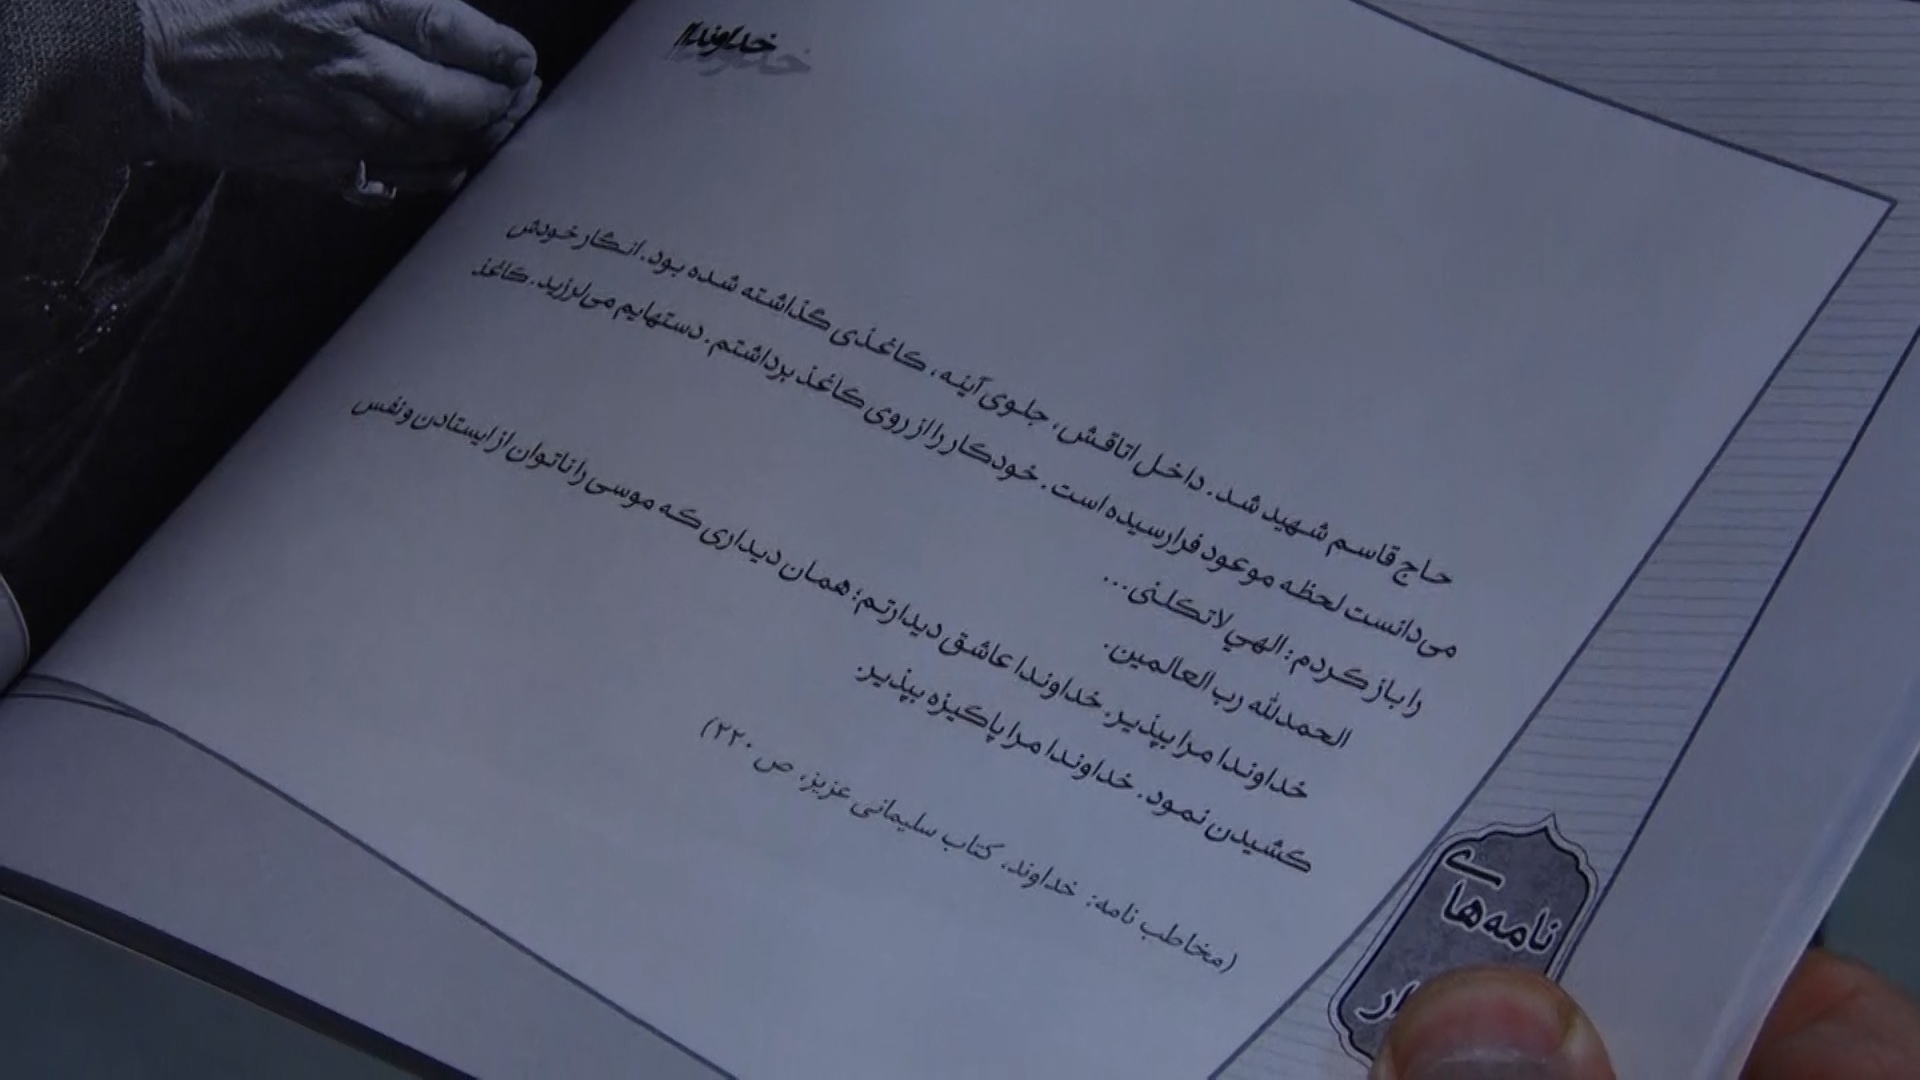 خداوندا
حاج قاسم شهید شد. داخل اتاقش، جلوی آینه، کاغذی گذاشته شده بود. انگار خودش
می‌دانست لحظه موعود فرارسیده است. خودکار را از روی کاغذ برداشتم. دستهایم می‌لرزید. کاغذ
را باز کردم: الهي لاتکلنی...
الحمدلله رب العالمین.
خداوندا مرا بپذیر. خداوندا عاشق دیدارتم؛ همان دیداری که موسی را ناتوان از ایستادن و نفس
کشیدن نمود. خداوندا مرا پاکیزه بپذیر.
(مخاطب نامه: خداوند، کتاب سلیمانی عزیز، ص ۲۲۰)
نامه‌های